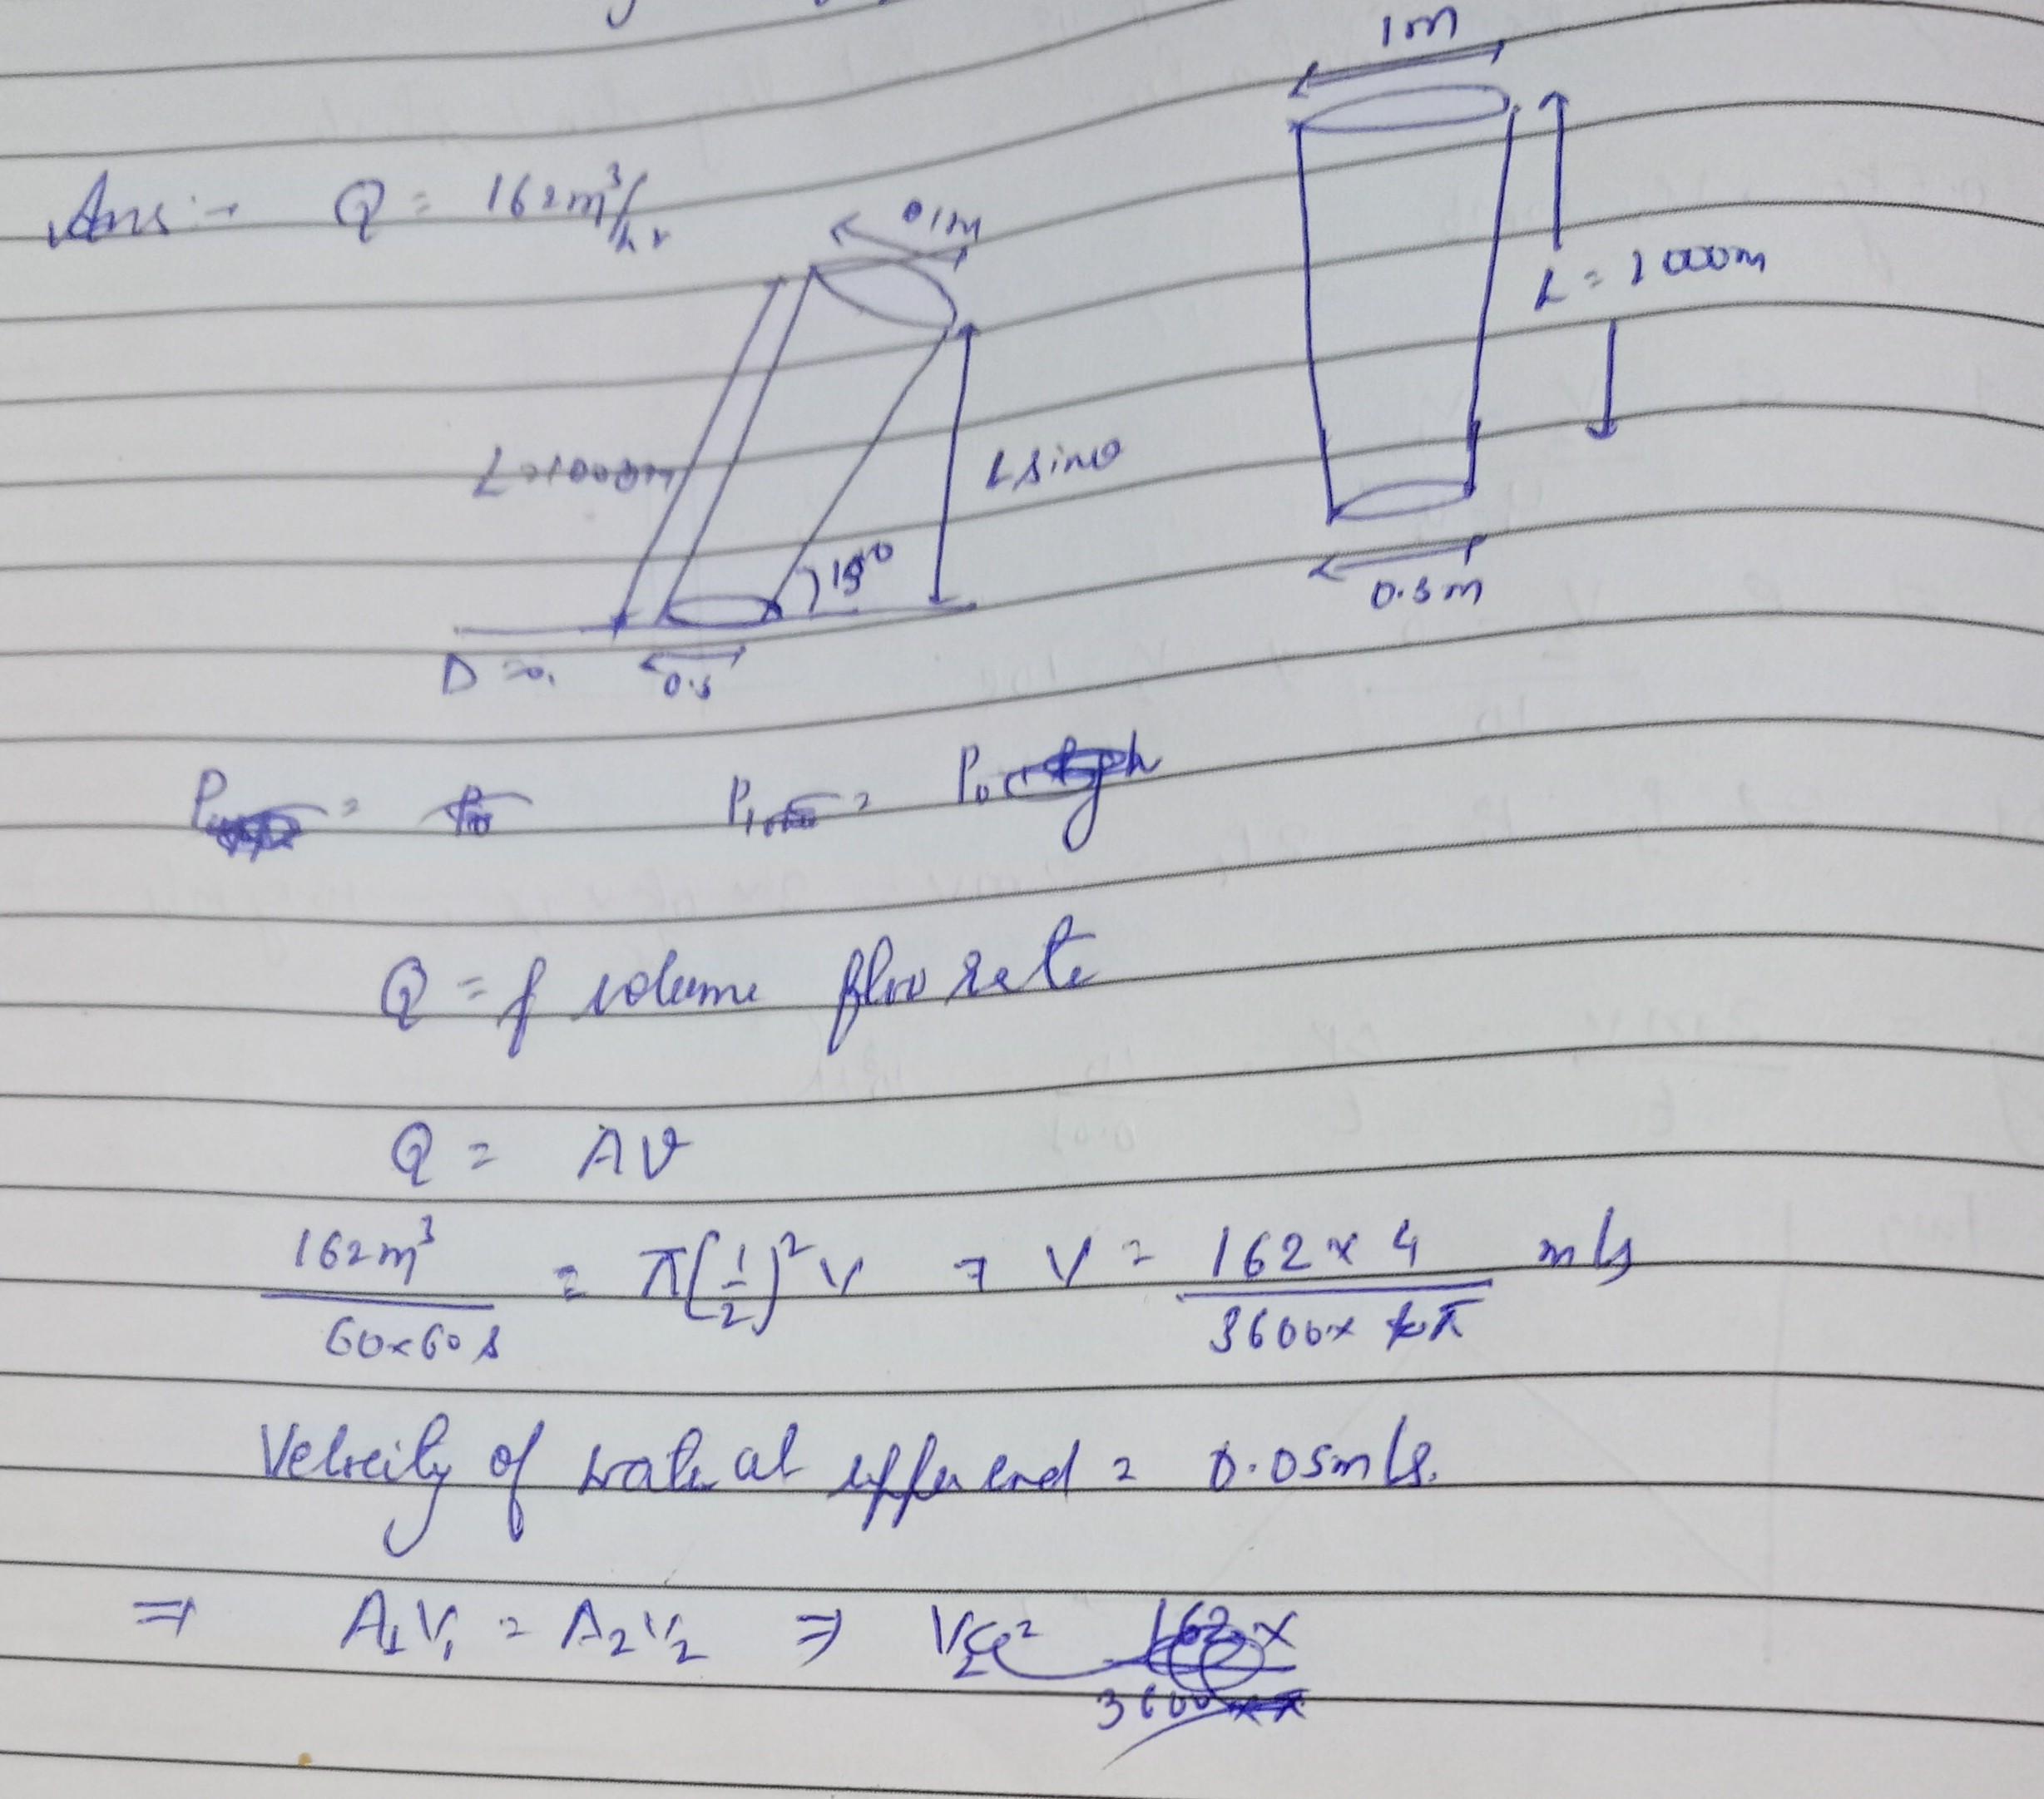 1m
Ans:→ Q = 162m³/hr
01m
L = 1000m
L = 1000m
Lsinθ
15°
0.5m
D = 0.
0.5
P = P₀ P₁ = P₀ + ρgh
Q = f volume flow rate
Q = AV
162m³/60×60s = π(1/2)²V ⇒ V = 162×4/3600×π m/s
Velocity of water at upper end = 0.05m/s.
⇒ A₁V₁ = A₂V₂ ⇒ V₂ = 162×/3600